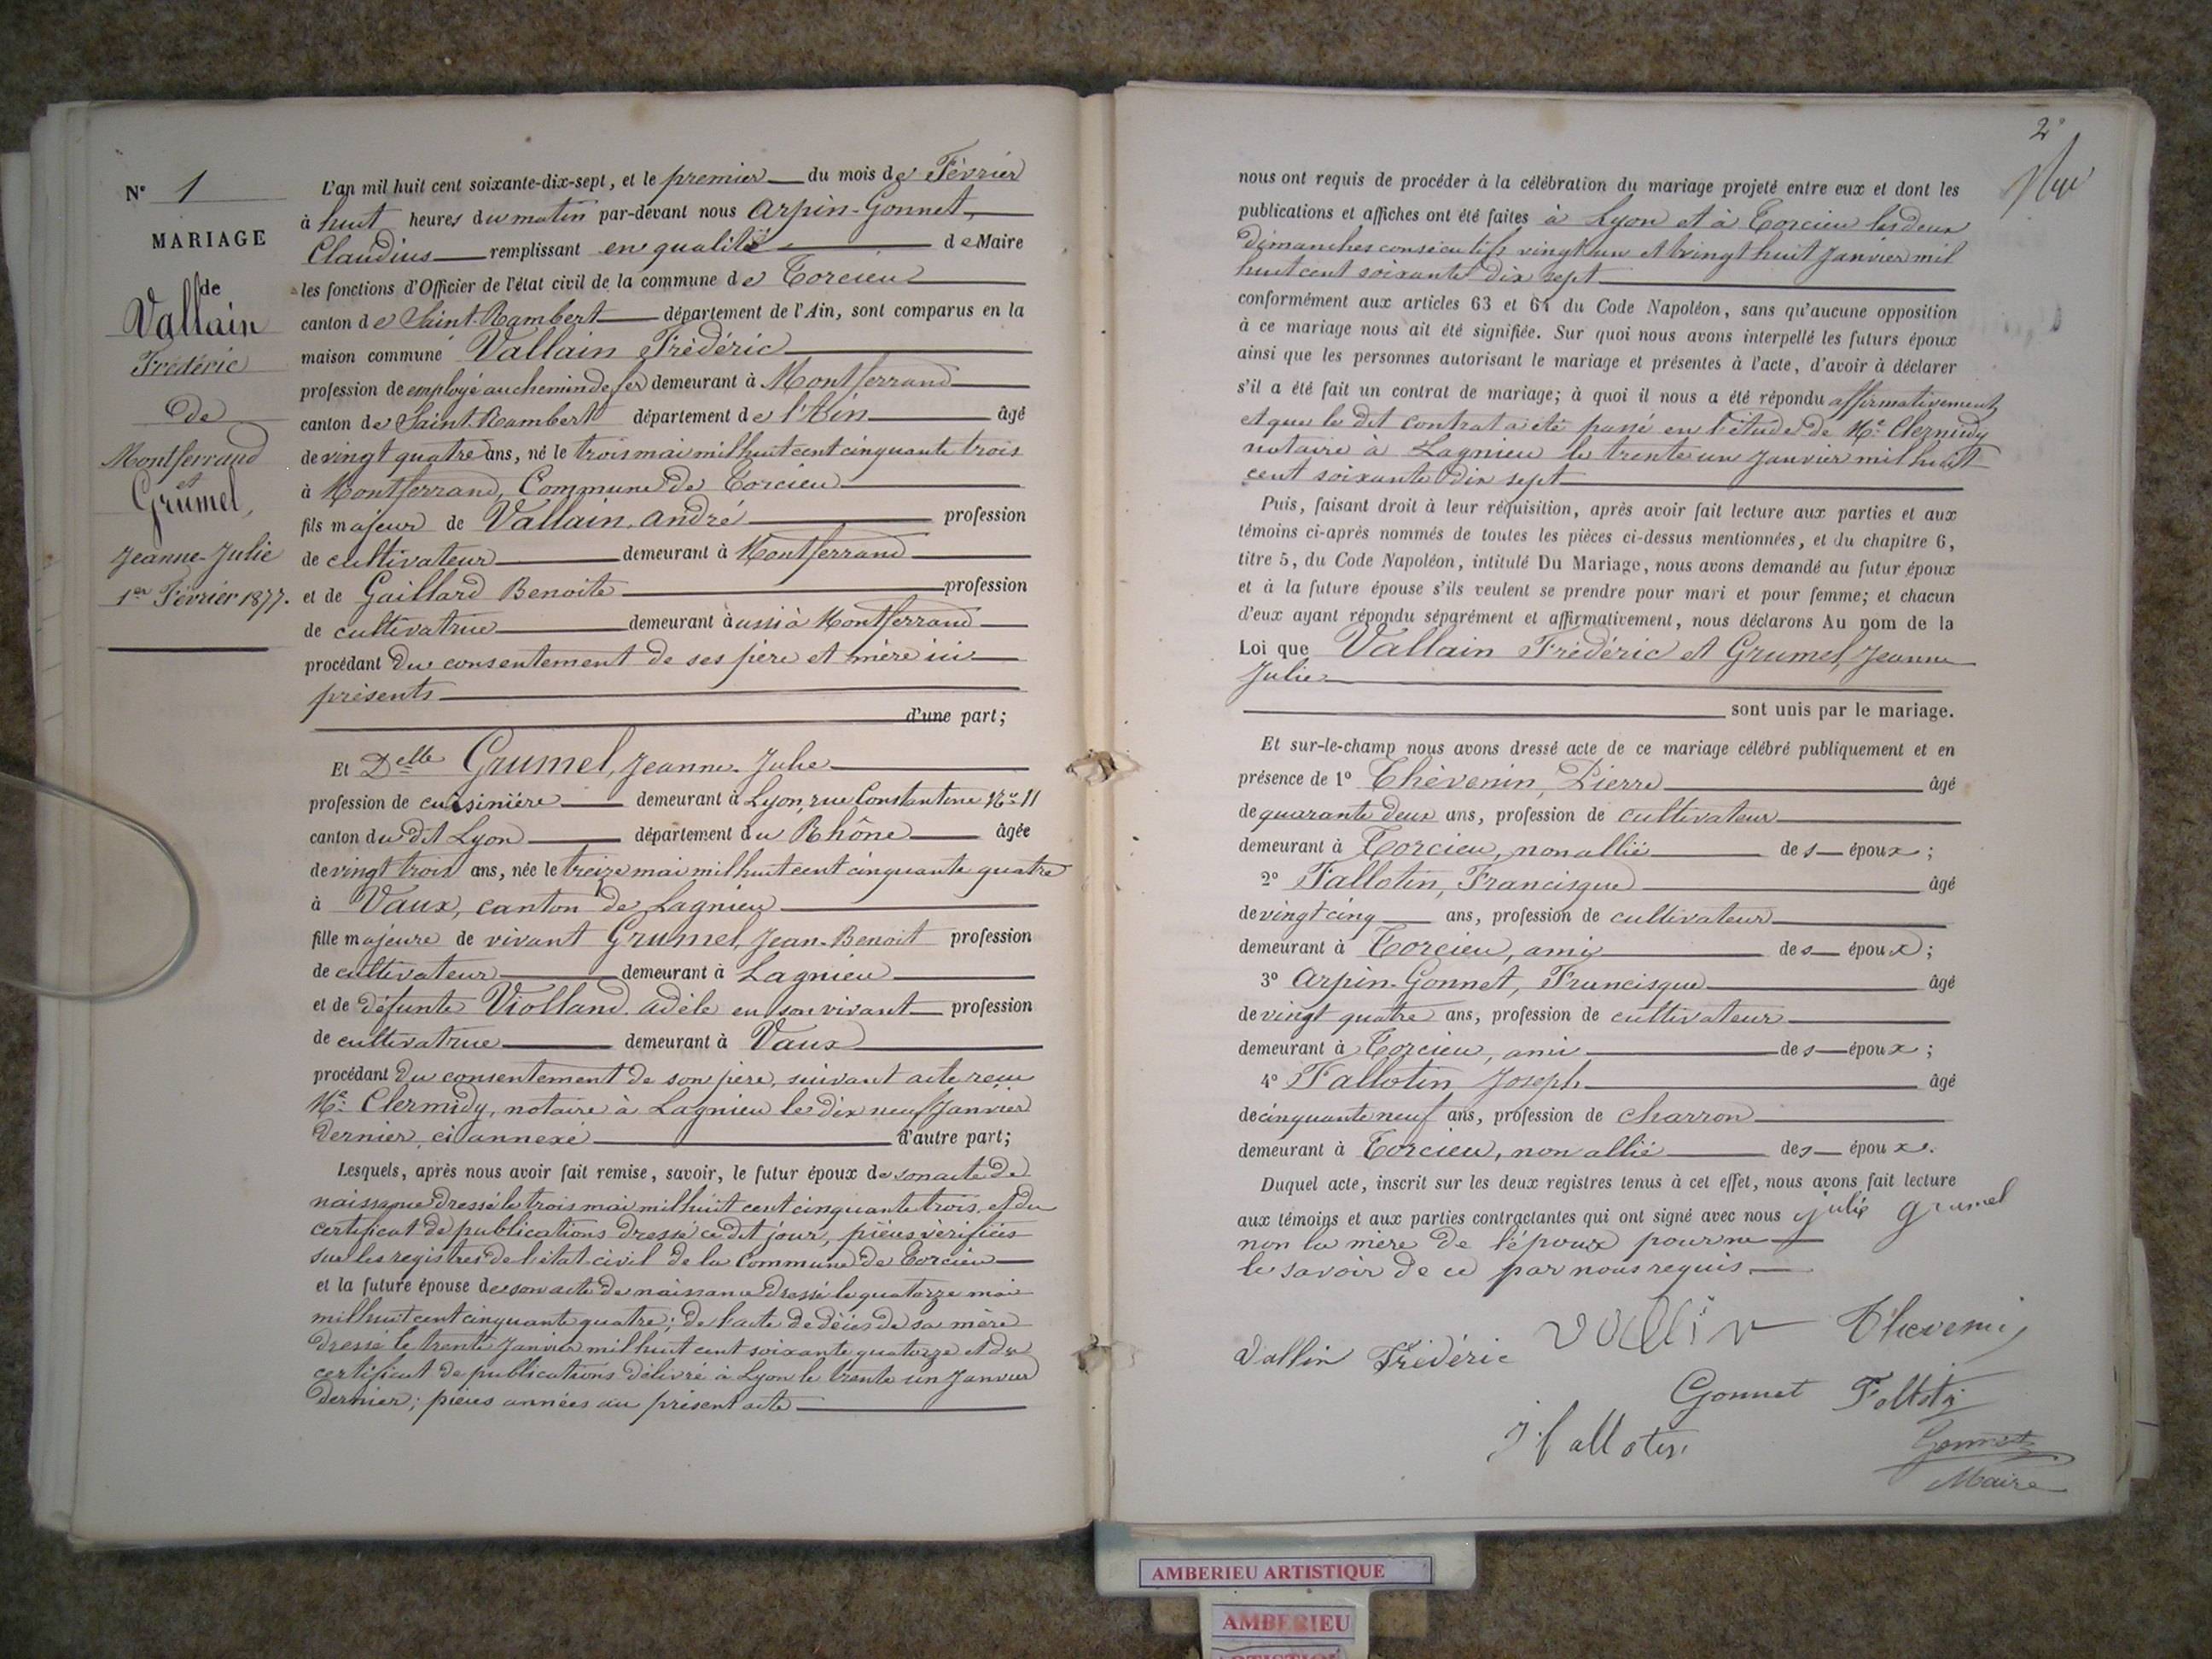 N° 1
MARIAGE
de
Vallain
Frédéric
de
Montferrand
et
Grumel,
Jeanne-Julie
1er Février 1877.
L'an mil huit cent soixante-dix-sept, et le premier du mois de Février
à huit heures du matin par-devant nous Arpin-Gonnet,
Claudius remplissant en qualité de Maire
les fonctions d'Officier de l'état civil de la commune de Torcieu
canton de Saint-Rambert département de l'Ain, sont comparus en la
maison commune Vallain Frédéric
profession de employé au chemin de fer demeurant à Montferrand
canton de Saint-Rambert département de l'Ain âgé
de vingt quatre ans, né le trois mai mil huit cent cinquante trois
à Montferrand, Commune de Torcieu
fils majeur de Vallain, André profession
de cultivateur demeurant à Montferrand
et de Gaillard Benoite profession
de cultivatrice demeurant à ussi à Montferrand
procédant du consentement de ses père et mère ici
présents
d'une part;
Et Delle Grumel, Jeanne-Julie
profession de cuisinière demeurant à Lyon, rue Constantine No 11
canton du dit Lyon département du Rhône âgée
de vingt trois ans, née le treize mai mil huit cent cinquante quatre
à Vaux, canton de Lagnieu
fille majeure de vivant Grumel, Jean-Benoit profession
de cultivateur demeurant à Lagnieu
et de défunte Violland Adèle en son vivant profession
de cultivatrice demeurant à Vaux
procédant du consentement de son père, suivant acte reçu
Me Clermidy, notaire à Lagnieu le dix neuf Janvier
dernier, ci annexé d'autre part;
Lesquels, après nous avoir fait remise, savoir, le futur époux de son acte de
naissance dressé le trois mai mil huit cent cinquante trois, et du
certificat de publications dressé ce dit jour, pièces vérifiées
sur les registres de l'état civil de la Commune de Torcieu
et la future épouse de son acte de naissance dressé le quatorze mai
mil huit cent cinquante quatre; de l'acte de décès de sa mère
dressé le trente Janvier mil huit cent soixante quatorze et du
certificat de publications délivré à Lyon le trente un Janvier
dernier; pièces annexées au présent acte
2
nous ont requis de procéder à la célébration du mariage projeté entre eux et dont les
publications et affiches ont été faites à Lyon et à Torcieu les deux
dimanches consécutifs vingt un et vingt huit Janvier mil
huit cent soixante dix sept
conformément aux articles 63 et 64 du Code Napoléon, sans qu'aucune opposition
à ce mariage nous ait été signifiée. Sur quoi nous avons interpellé les futurs époux
ainsi que les personnes autorisant le mariage et présentes à l'acte, d'avoir à déclarer
s'il a été fait un contrat de mariage; à quoi il nous a été répondu affirmativement
et que le dit contrat a été passé en l'étude de Me Clermidy
notaire à Lagnieu le trente un Janvier mil huit
cent soixante dix sept
Puis, faisant droit à leur réquisition, après avoir fait lecture aux parties et aux
témoins ci-après nommés de toutes les pièces ci-dessus mentionnées, et du chapitre 6,
titre 5, du Code Napoléon, intitulé Du Mariage, nous avons demandé au futur époux
et à la future épouse s'ils veulent se prendre pour mari et pour femme; et chacun
d'eux ayant répondu séparément et affirmativement, nous déclarons Au nom de la
Loi que Vallain Frédéric et Grumel, Jeanne
Julie
sont unis par le mariage.
Et sur-le-champ nous avons dressé acte de ce mariage célébré publiquement et en
présence de 1° Thévenin, Pierre âgé
de quarante deux ans, profession de cultivateur
demeurant à Torcieu, non allié des époux;
2° Fallotin, Francisque âgé
de vingt cinq ans, profession de cultivateur
demeurant à Torcieu, ami des époux;
3° Arpin-Gonnet, Francisque âgé
de vingt quatre ans, profession de cultivateur
demeurant à Torcieu, ami des époux;
4° Fallotin Joseph âgé
de cinquante neuf ans, profession de charron
demeurant à Torcieu, non allié des époux.
Duquel acte, inscrit sur les deux registres tenus à cet effet, nous avons fait lecture
aux témoins et aux parties contractantes qui ont signé avec nous julie grumel
non la mère de l'époux pour ne
le savoir de ce par nous requis.
Vallin Frédéric Vallin Thevenin
Gonnet Fallotin
J Fallotin
Gonnet
Maire
AMBERIEU ARTISTIQUE
AMBERIEU
ARTISTIQUE